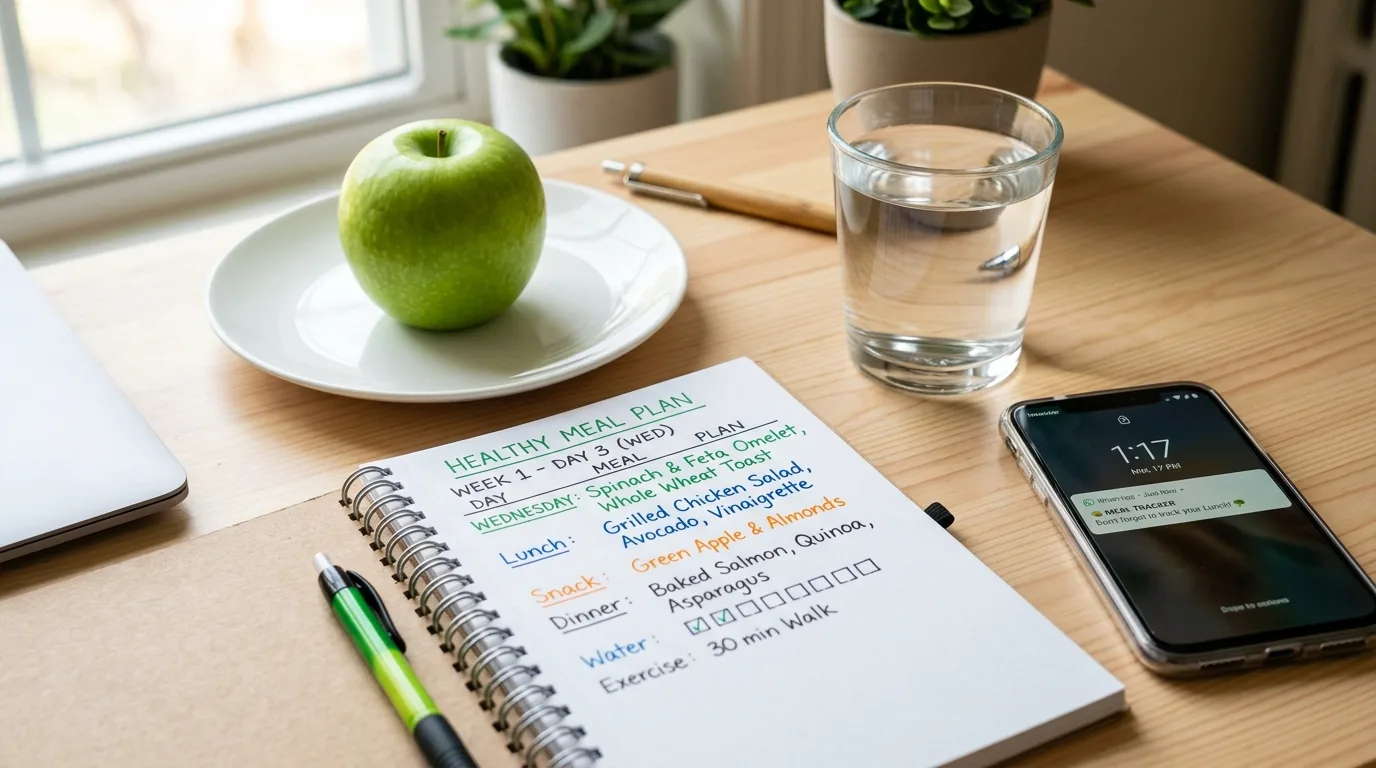 HEALTHY MEAL PLAN
WEEK 1 - DAY 3 (WED)
DAY MEAL PLAN
WEDNESDAY: Spinach & Feta Omelet,
Whole Wheat Toast
Lunch: Grilled Chicken Salad,
Avocado, Vinaigrette
Snack: Green Apple & Almonds
Dinner: Baked Salmon, Quinoa,
Asparagus
Water: ☑☑☐☐☐☐☐☐
Exercise: 30 min Walk
1:17
MEAL TRACKER
Don't forget to track your Lunch!